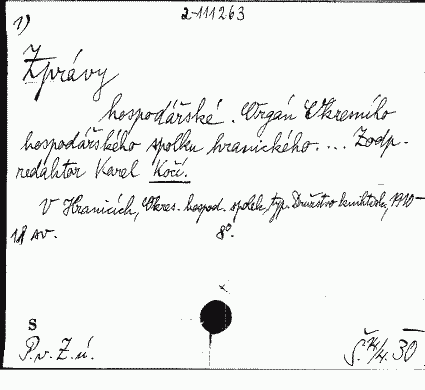 1) 2-111263
Zprávy
hospodářské. Orgán Okresního
hospodářského spolku hranického.... Zodp.
redaktor Karel Kočí.
V Hranicích, Okres. hospod. spolek, typ. Družstvo knihtisk., 1910-
18 sv. 8°.
S
P.v.Z.ú. Š. 14/4. 30